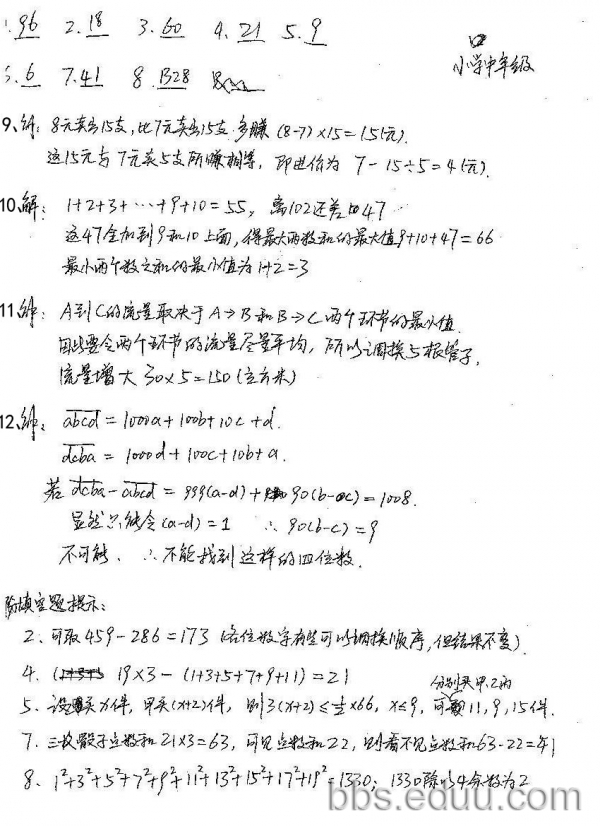 1. 96 2. 18 3. 60 4. 21 5. 9
小学中年级
6. 6 7. 41 8. 1328
9、解: 8元卖出15支,比7元卖出15支多赚 (8-7)×15=15(元).
这15元与7元卖5支所赚相等, 即进价为 7-15÷5=4(元).
10、解: 1+2+3+…+9+10=55, 离102还差47
这47全加到9和10上面,得最大两数和的最大值9+10+47=66
最小两个数之和的最小值为1+2=3
11、解: A到C的流量取决于A→B和B→C两个环节的最小值.
因此要令两个环节的流量尽量平均, 所以调换5根管子,
流量增大 30×5=150(立方米)
12、解: abcd = 1000a+100b+10c+d.
dcba = 1000d+100c+10b+a.
若 dcba-abcd = 999(a-d)+90(b-c)=1008.
显然只能令(a-d)=1 ∴ 90(b-c)=9
不可能. ∴ 不能找到这样的四位数.
附填空题提示:
2、可取459-286=173 (各位数字有些可以调换顺序,但结果不变)
4. 19×3-(1+3+5+7+9+11)=21
分别买甲、乙、丙
5、设买x件, 甲买(x+2)件, 则3(x+2)≤½×66, x≤9, 可 11,9,15件.
7、三枚骰子点数和21×3=63, 可见点数和22, 则看不见点数和63-22=41
8、1²+3²+5²+7²+9²+11²+13²+15²+17²+19²=1330; 1330除以4余数为2
bbs.eduu.com